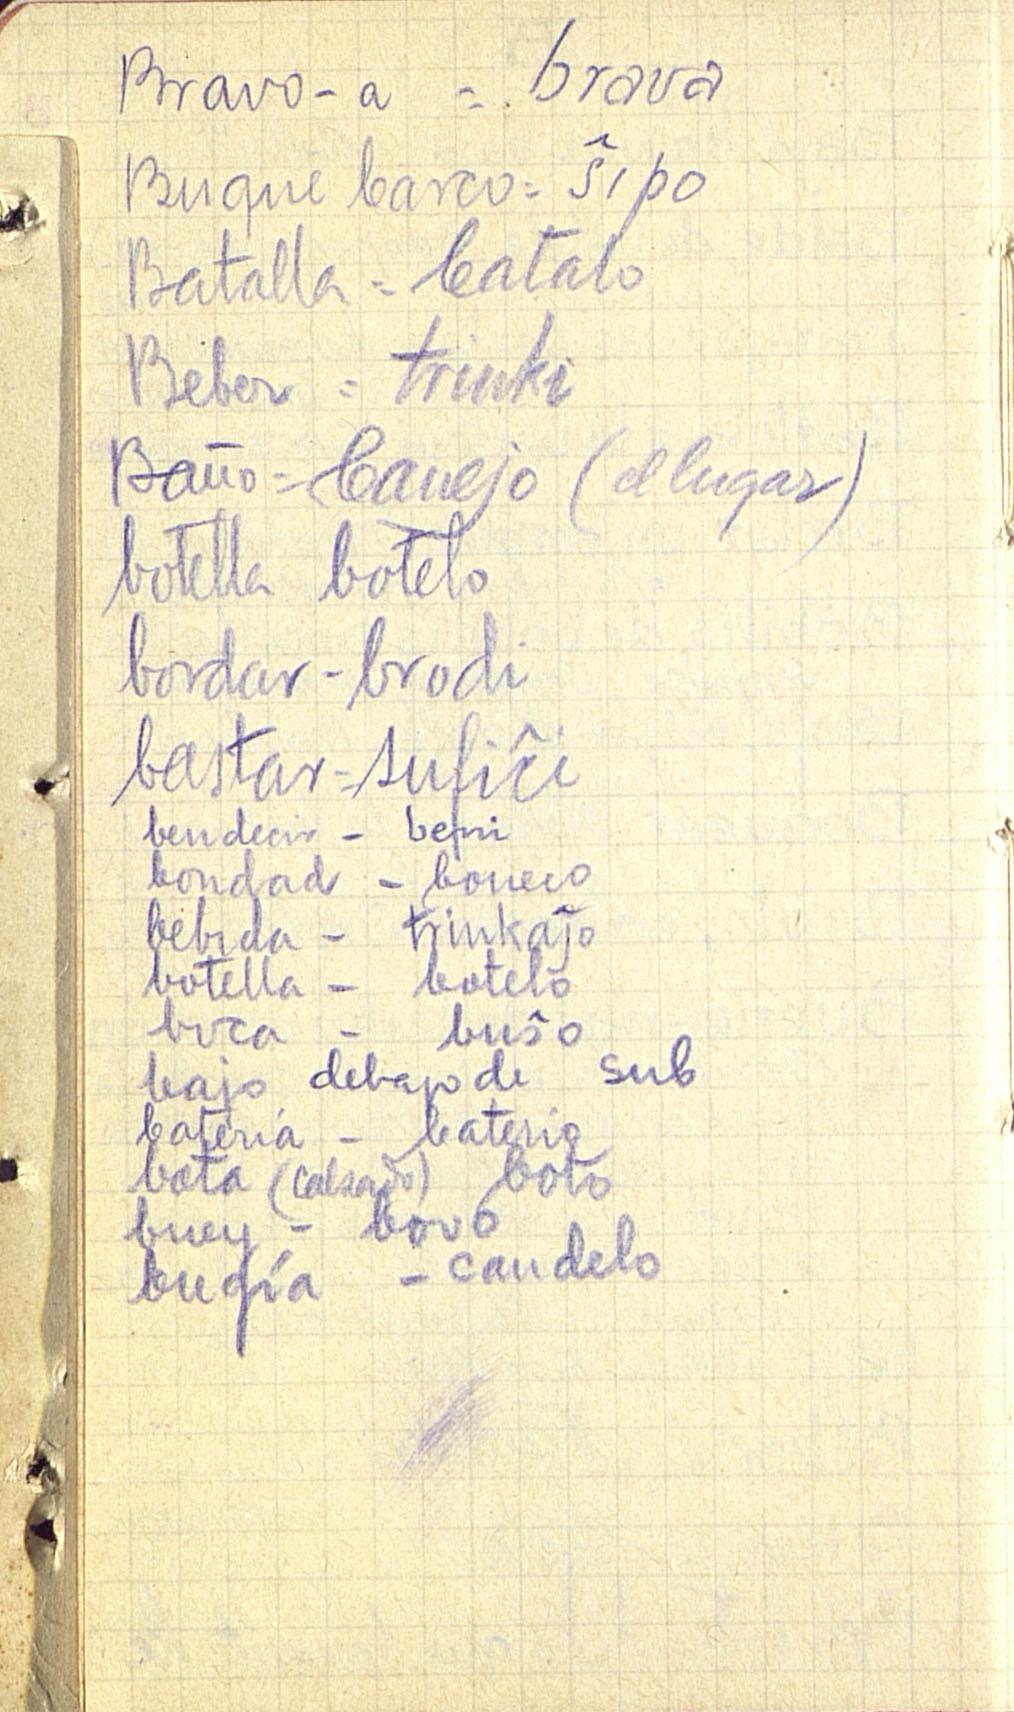 Bravo-a = brava
Buque barco = ŝipo
Batalla = batalo
Beber = trinki
Baño = banejo (el lugar)
botella botelo
bordar - brodi
bastar = sufiĉi
bendecir - beni
bondad - boneco
bebida - trinkaĵo
botella - botelo
boca - buŝo
bajo debajo de sub
batería - baterio
bota (calzado) boto
buey - bovo
bugía - candelo